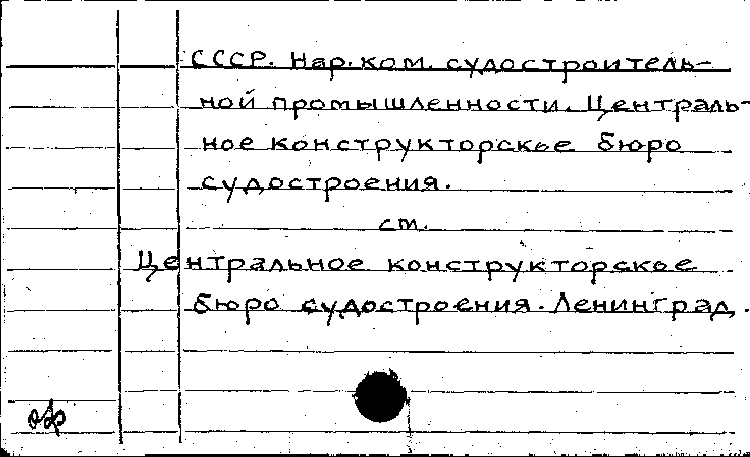 СССР. Нар.ком. судостроитель-
ной промышленности. Централь-
ное конструкторское бюро
судостроения.
см.
Центральное конструкторское
бюро судостроения. Ленинград.